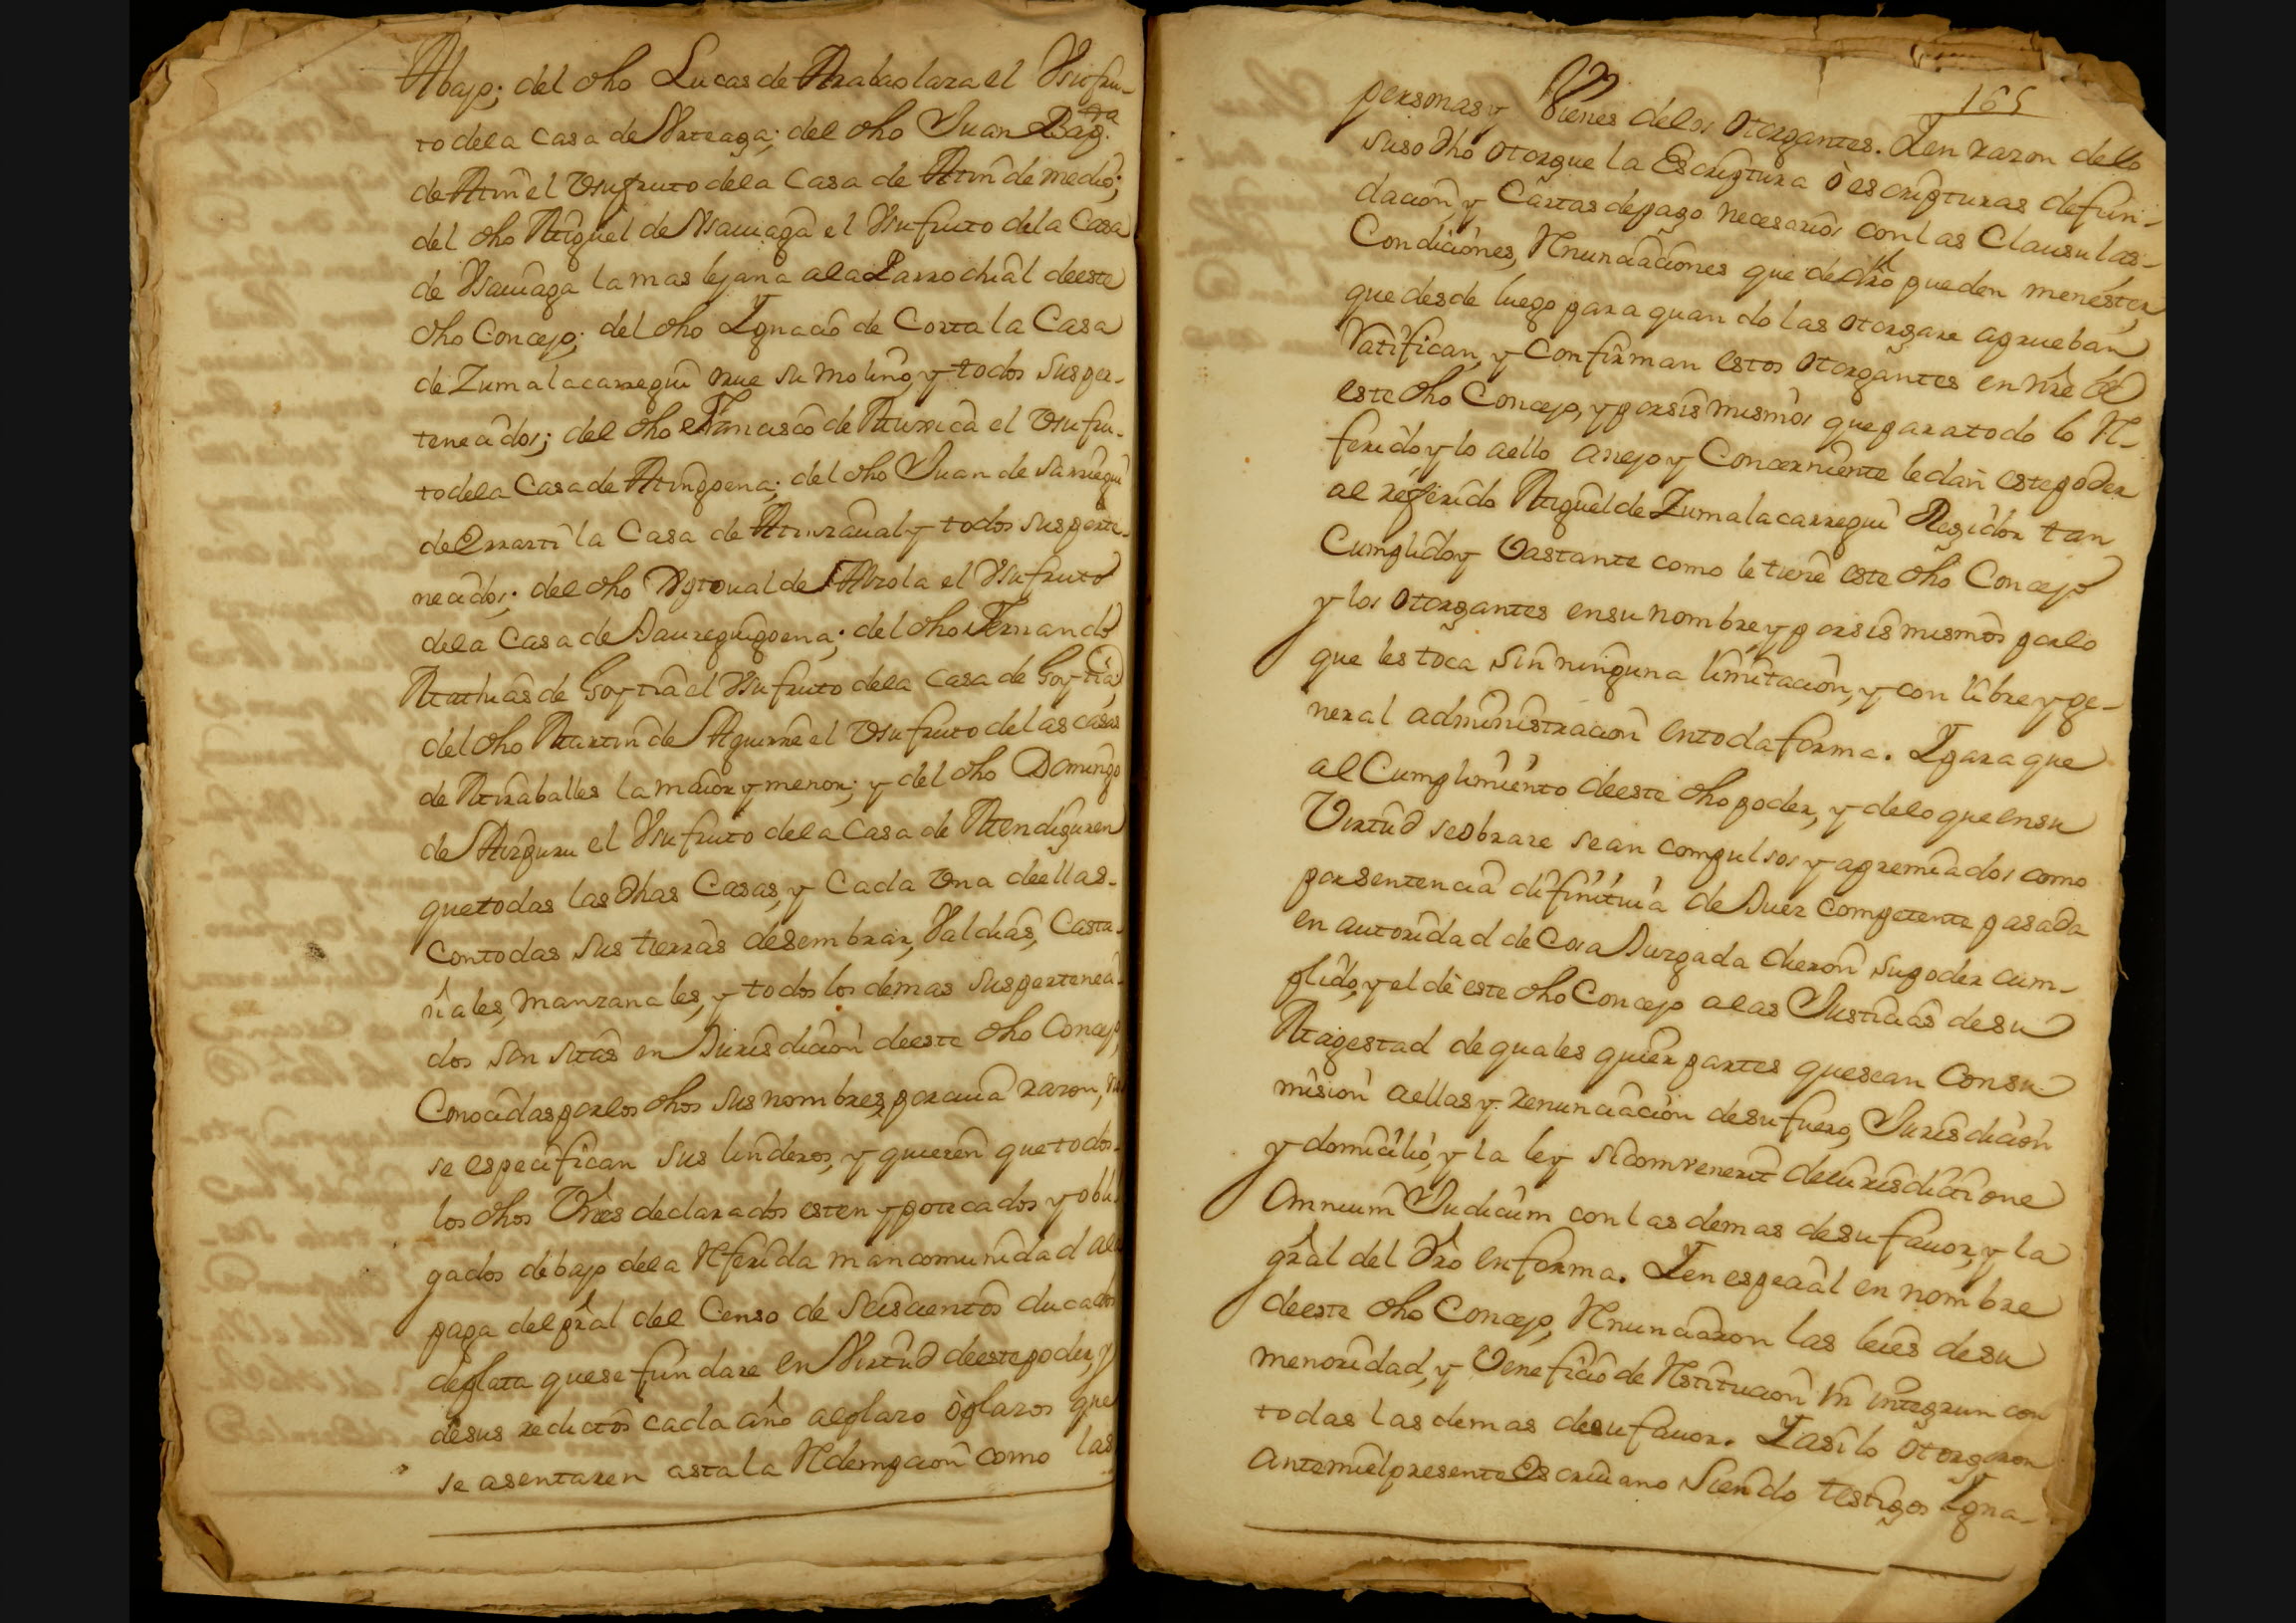 Abajo; del dho Lucas de Arabaolaza el Vsufru-
to dela Casa de Arteaga; del dho Juan Bapta
de Atin el Vsufruto dela Casa de Atin de medio;
del dho Miguel de Ysauiaga el Vsufruto dela Casa
de Ysauiaga la mas lejana ala Parrochial deeste
dho Concejo; del dho Ignacio de Corta la Casa
de Zumalacarregui su molino, y todos sus per-
tenecidos; del dho Francisco de el Vsufru-
to dela Casa de; del dho Juan de Sarriegui
de la Casa de y todos sus perte-
necidos; del dho de el Vsufruto
dela Casa de Jaureguigoena; del dho Fernando
Mathias de Goytia el Vsufruto dela Casa de Goytia;
del dho Martin de Aguirre el Vsufruto de las casas
de Miraballes la maior y menor; y del dho Domingo
de el Vsufruto dela Casa de Mendiguren
que todas las dhas Casas, y Cada Vna deellas-
Con todas sus tierras desembrar, Valdias, Casta-
ñales, manzanales, y todos los demas sus perteneci-
dos son sitas en Jurisdicion deeste dho Concejo
Conocidas por los dhos sus nombres, por cuia razon, no
se especifican sus linderos, y quieren que todos-
los dhos Vnes declarados esten ypotecados y obli-
gados debajo dela Referida mancomunidad ala
paga del pral del Censo de Seiscientos ducados
deplata que se fundare en Virtud deeste poder, y
desus reditos cada año alplazo ò plazos que
se asentaren asta la Redempcion como las
165
personas y Vienes delos Otorgantes. Y en razon dello
suso dho otorgue la Escriptura ò escripturas defun-
dacion, y Cartas depago necesarios con las Clausulas-
Condiciones, Renunciaciones que de dro pueden menester,
que desde luego para quando las otorgare aprueban
Ratifican, y Confirman estos otorgantes en nre de
este dho Concejo, y por sis mismos que para todo lo Re-
ferido y lo aello anejo y Concerniente le dan este poder
al referido Miguel de Zumalacarregui Regidor tan
Cumplido y Vastante como le tiene este dho Concejo
y los Otorgantes ensu nombre y por sis mismos por lo
que les toca sin ninguna limitacion, y con libre y ge-
neral administracion en toda forma. Y para que
al Cumplimiento deeste dho poder, y delo que ensu
Virtud se obrare sean compulsos y apremiados como
por sentencia difinitiua de Juez competente pasada
en autoridad de Cosa Juzgada dieron su poder cum-
plido, y el de este dho Concejo alas Justicias de su
Magestad de quales quier partes que sean Consu-
mision aellas y renunciacion de su fuero, Jurisdicion
y domicilio, y la ley sicomvenerit de Jurisdictione
Omnium Judicum con las demas de su fauor, y la
gral del dro en forma. Y en especial en nombre
deeste dho Concejo, Renunciaron las leies de su
menoridad, y Veneficio de Restitucion in integrun con
todas las demas desu fauor. Y asi lo otorgaron
Antemi el presente Escriuano Siendo testigos Igna-